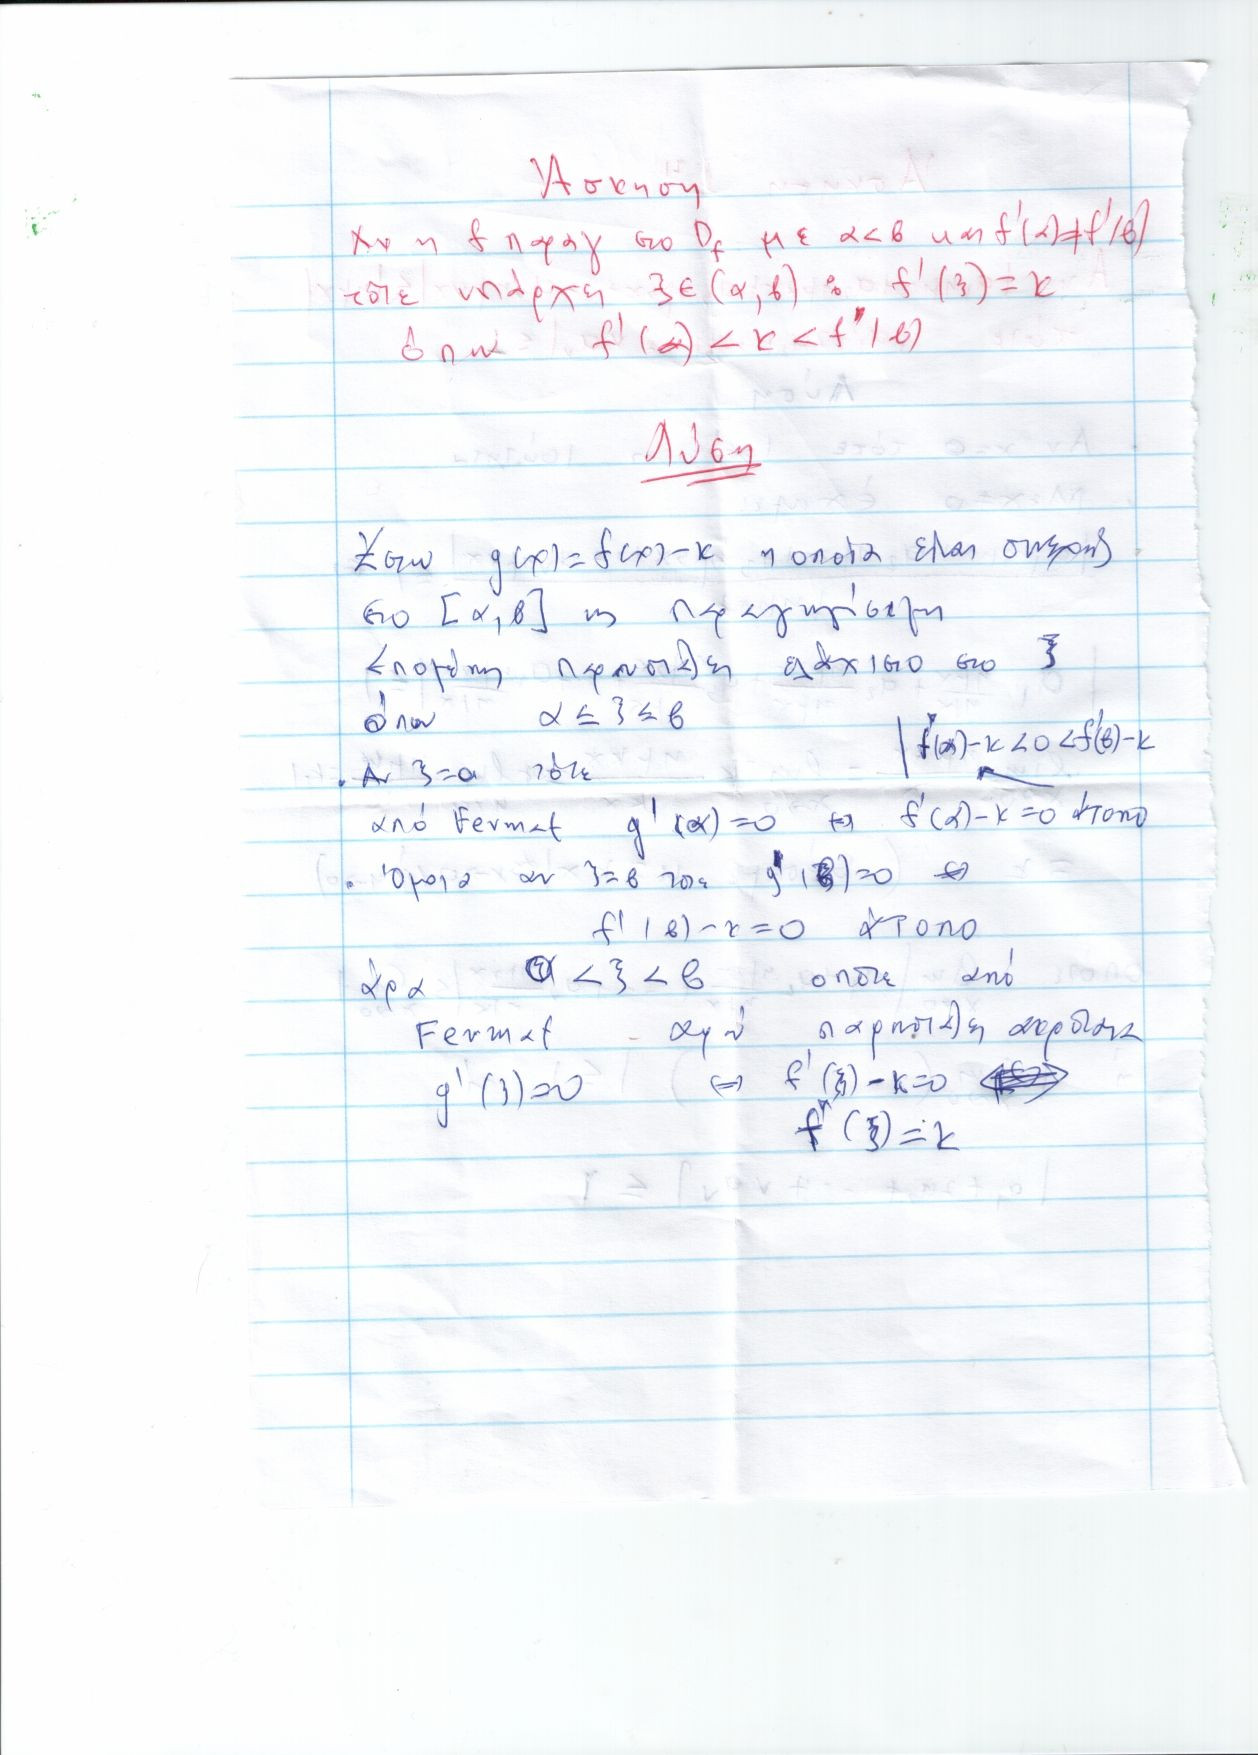 Άσκηση
Αν η f παραγ στο Df με α<β και f'(α)≠f'(β)
τότε υπάρχει ξ∈(α,β) : f'(ξ)=κ
όπου f'(α)<κ<f'(β)
Λύση
Έστω g(x)=f(x)-κ η οποία είναι συνεχής
στο [α,β] ως παραγωγίσιμη
Επομένως παρουσιάζει ελάχιστο στο ξ
όπου α≤ξ≤β
f'(α)-κ<0<f'(β)-κ
. Αν ξ=α τότε
από Fermat g'(α)=0 ⇔ f'(α)-κ=0 άτοπο
. Όμοια αν ξ=β τότε g'(β)=0 ⇔
f'(β)-κ=0 άτοπο
άρα α<ξ<β οπότε από
Fermat αφού παρουσιάζει ακρότατο
g'(ξ)=0 ⇔ f'(ξ)-κ=0
f'(ξ)=κ